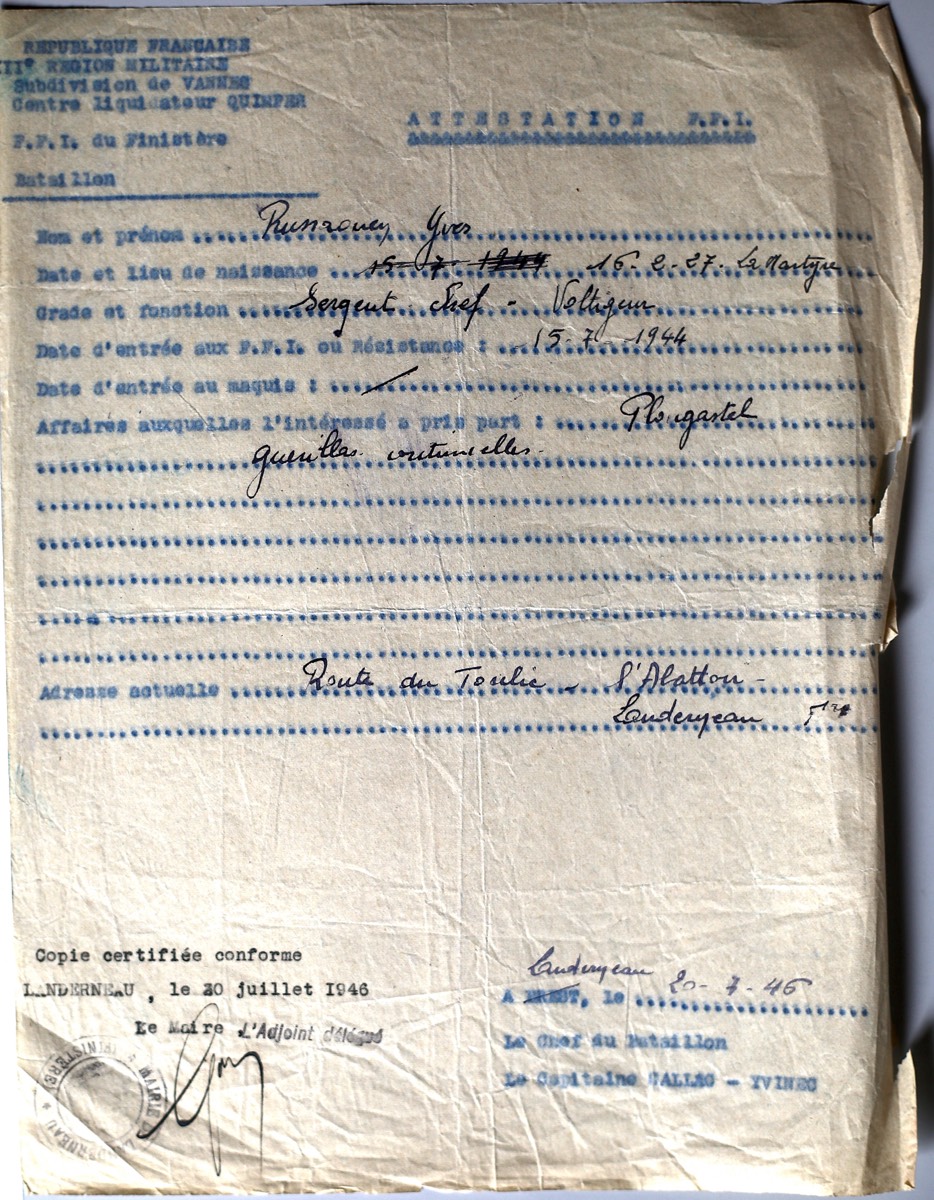 REPUBLIQUE FRANCAISE
II° REGION MILITAIRE
Subdivision de VANNES
Centre liquidateur QUIMPER
F.F.I. du Finistère
Bataillon
ATTESTATION F.F.I.
Nom et prénom Yves
Date et lieu de naissance 15-7-1944 16-2-27. La Martyre
Grade et fonction Sergent Chef - Voltigeur
Date d'entrée aux F.F.I. ou Résistance : 15-7-1944
Date d'entrée au maquis :
Affaires auxquelles l'intéressé a pris part : Plougastel
guerillas continuelles.
Adresse actuelle Route du Toulic -
Landerneau
Copie certifiée conforme
LANDERNEAU, le 20 juillet 1946
Le Maire L'Adjoint délégué
MAIRIE LANDERNEAU * FINISTÈRE *
Landerneau
A BREST, le 20-7-46
Le Chef du Bataillon
Le Capitaine GALLEC - YVINEC